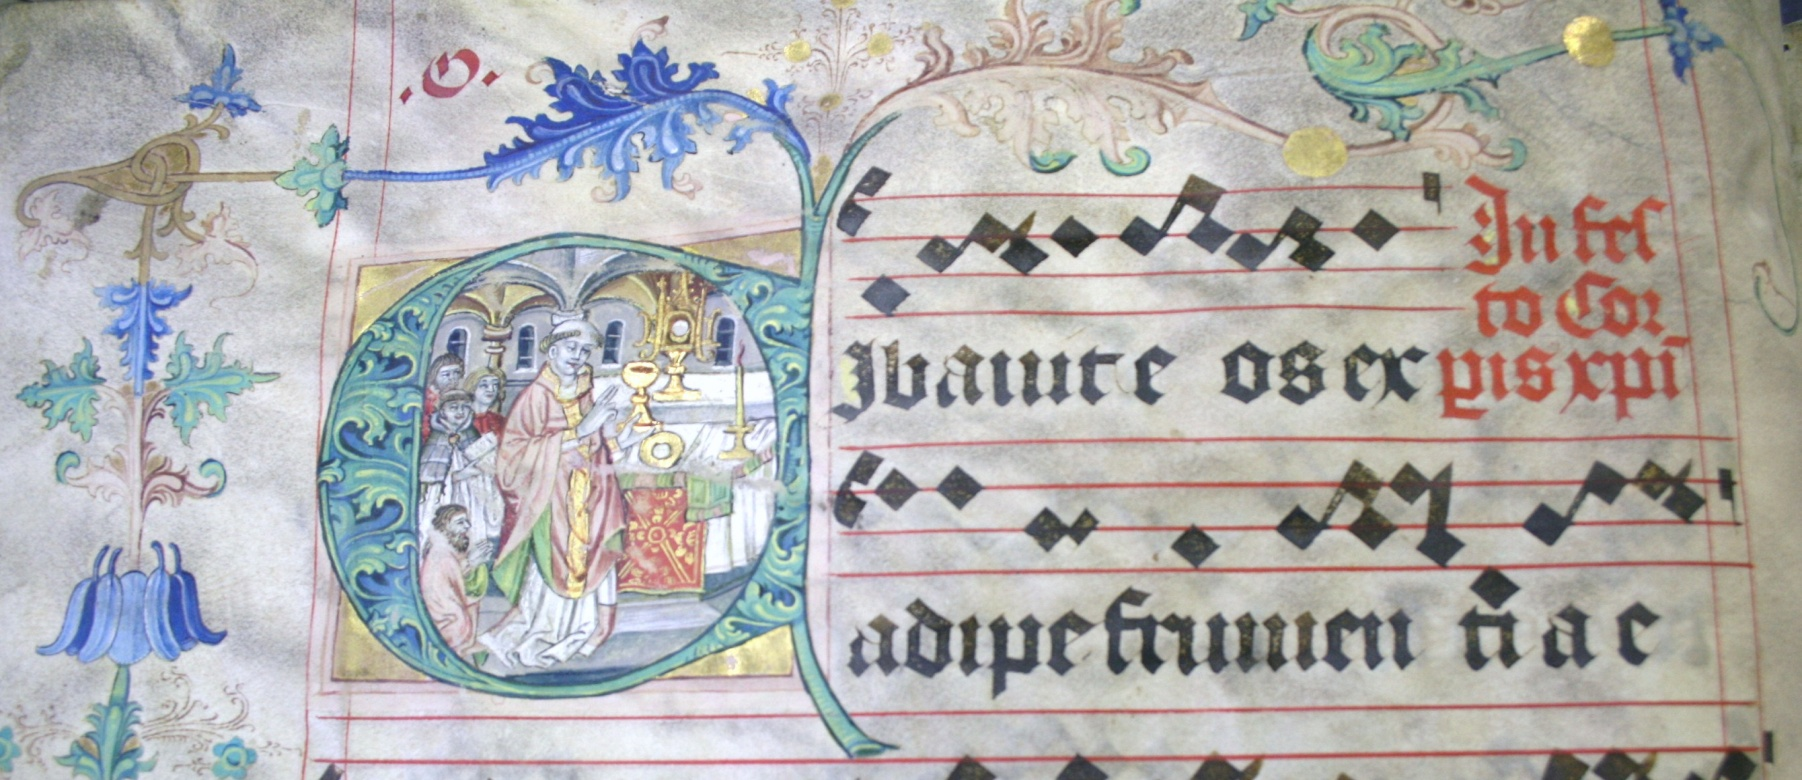 .O.
In fes
to Cor
pis xpī
CIbauit e os ex
adipe frumen ti a e